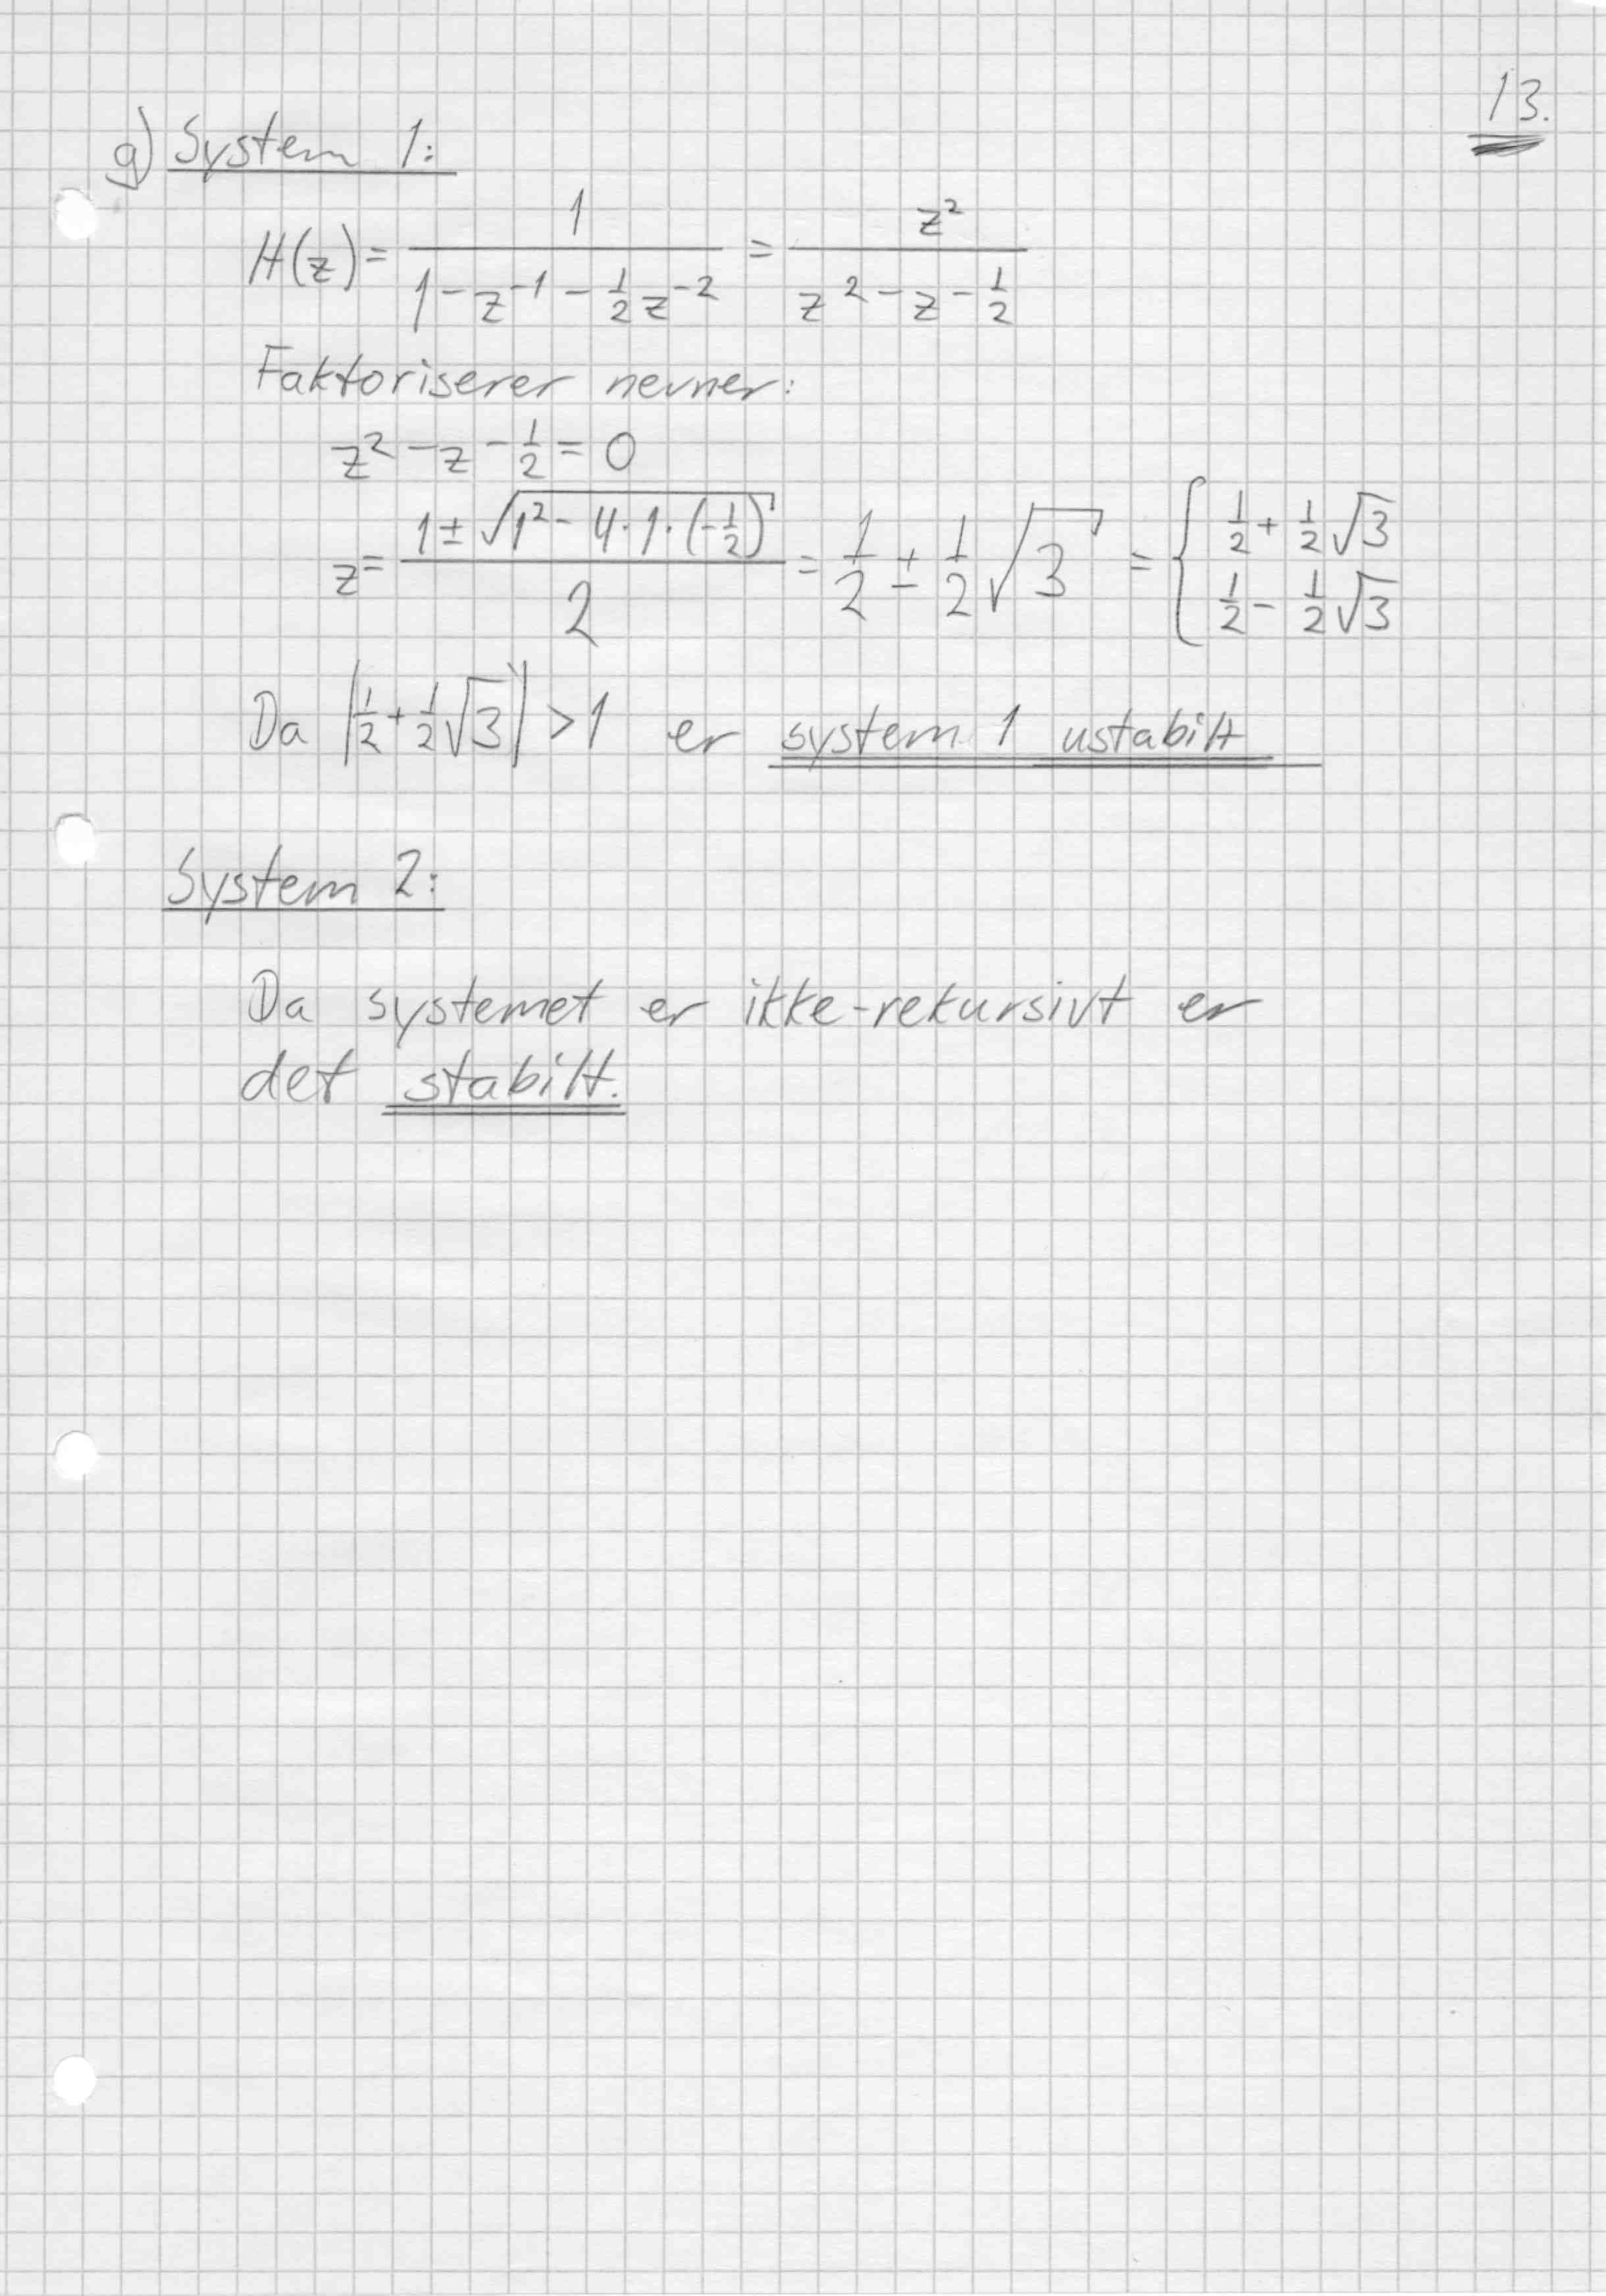 13.
g) System 1:
H(z) = 1 / (1 - z⁻¹ - ½z⁻²) = z² / (z² - z - ½)
Faktoriserer nevner:
z² - z - ½ = 0
z = (1 ± √(1² - 4·1·(-½))) / 2 = 1/2 ± 1/2 √3 = { ½ + ½√3
½ - ½√3
Da |½ + ½√3| > 1 er system 1 ustabilt
System 2:
Da systemet er ikke-rekursivt er
det stabilt.